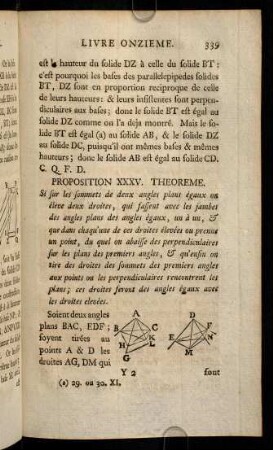 LIVRE ONZIEME. 339
est la hauteur du solide DZ à celle du solide BT :
c'est pourquoi les bases des parallelepipedes solides
BT, DZ sont en proportion reciproque de celle
de leurs hauteurs : & leurs insistentes sont perpen-
diculaires aux bases ; donc le solide BT est égal au
solide DZ comme on l'a deja montré. Mais le so-
lide BT est égal (a) au solide AB, & le solide DZ
au solide DC, puisqu'il ont mêmes bases & mêmes
hauteurs ; donc le solide AB est égal au solide CD.
C. Q. F. D.
PROPOSITION XXXV. THEOREME.
Si sur les sommets de deux angles plans égaux on
éleve deux droites, qui fassent avec les jambes
des angles plans des angles égaux, un à un, &
que dans chaqu'une de ces droites élevées on prenne
un point, du quel on abaisse des perpendiculaires
sur les plans des premiers angles, & qu'enfin on
tire des droites des sommets des premiers angles
aux points ou les perpendiculaires rencontrent les
plans ; ces droites feront des angles égaux avec
les droites élevées.
Soient deux angles
plans BAC, EDF ;
soyent tirées au
points A & D les
droites AG, DM qui
A
B
C
K
H
L
G
D
F
N
E
M
Y 2
font
(a) 29. ou 30. XI.